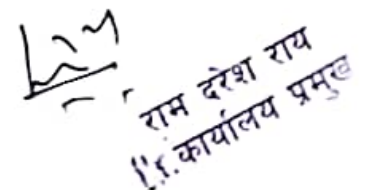 राम दरेश राय
कार्यालय प्रमुख